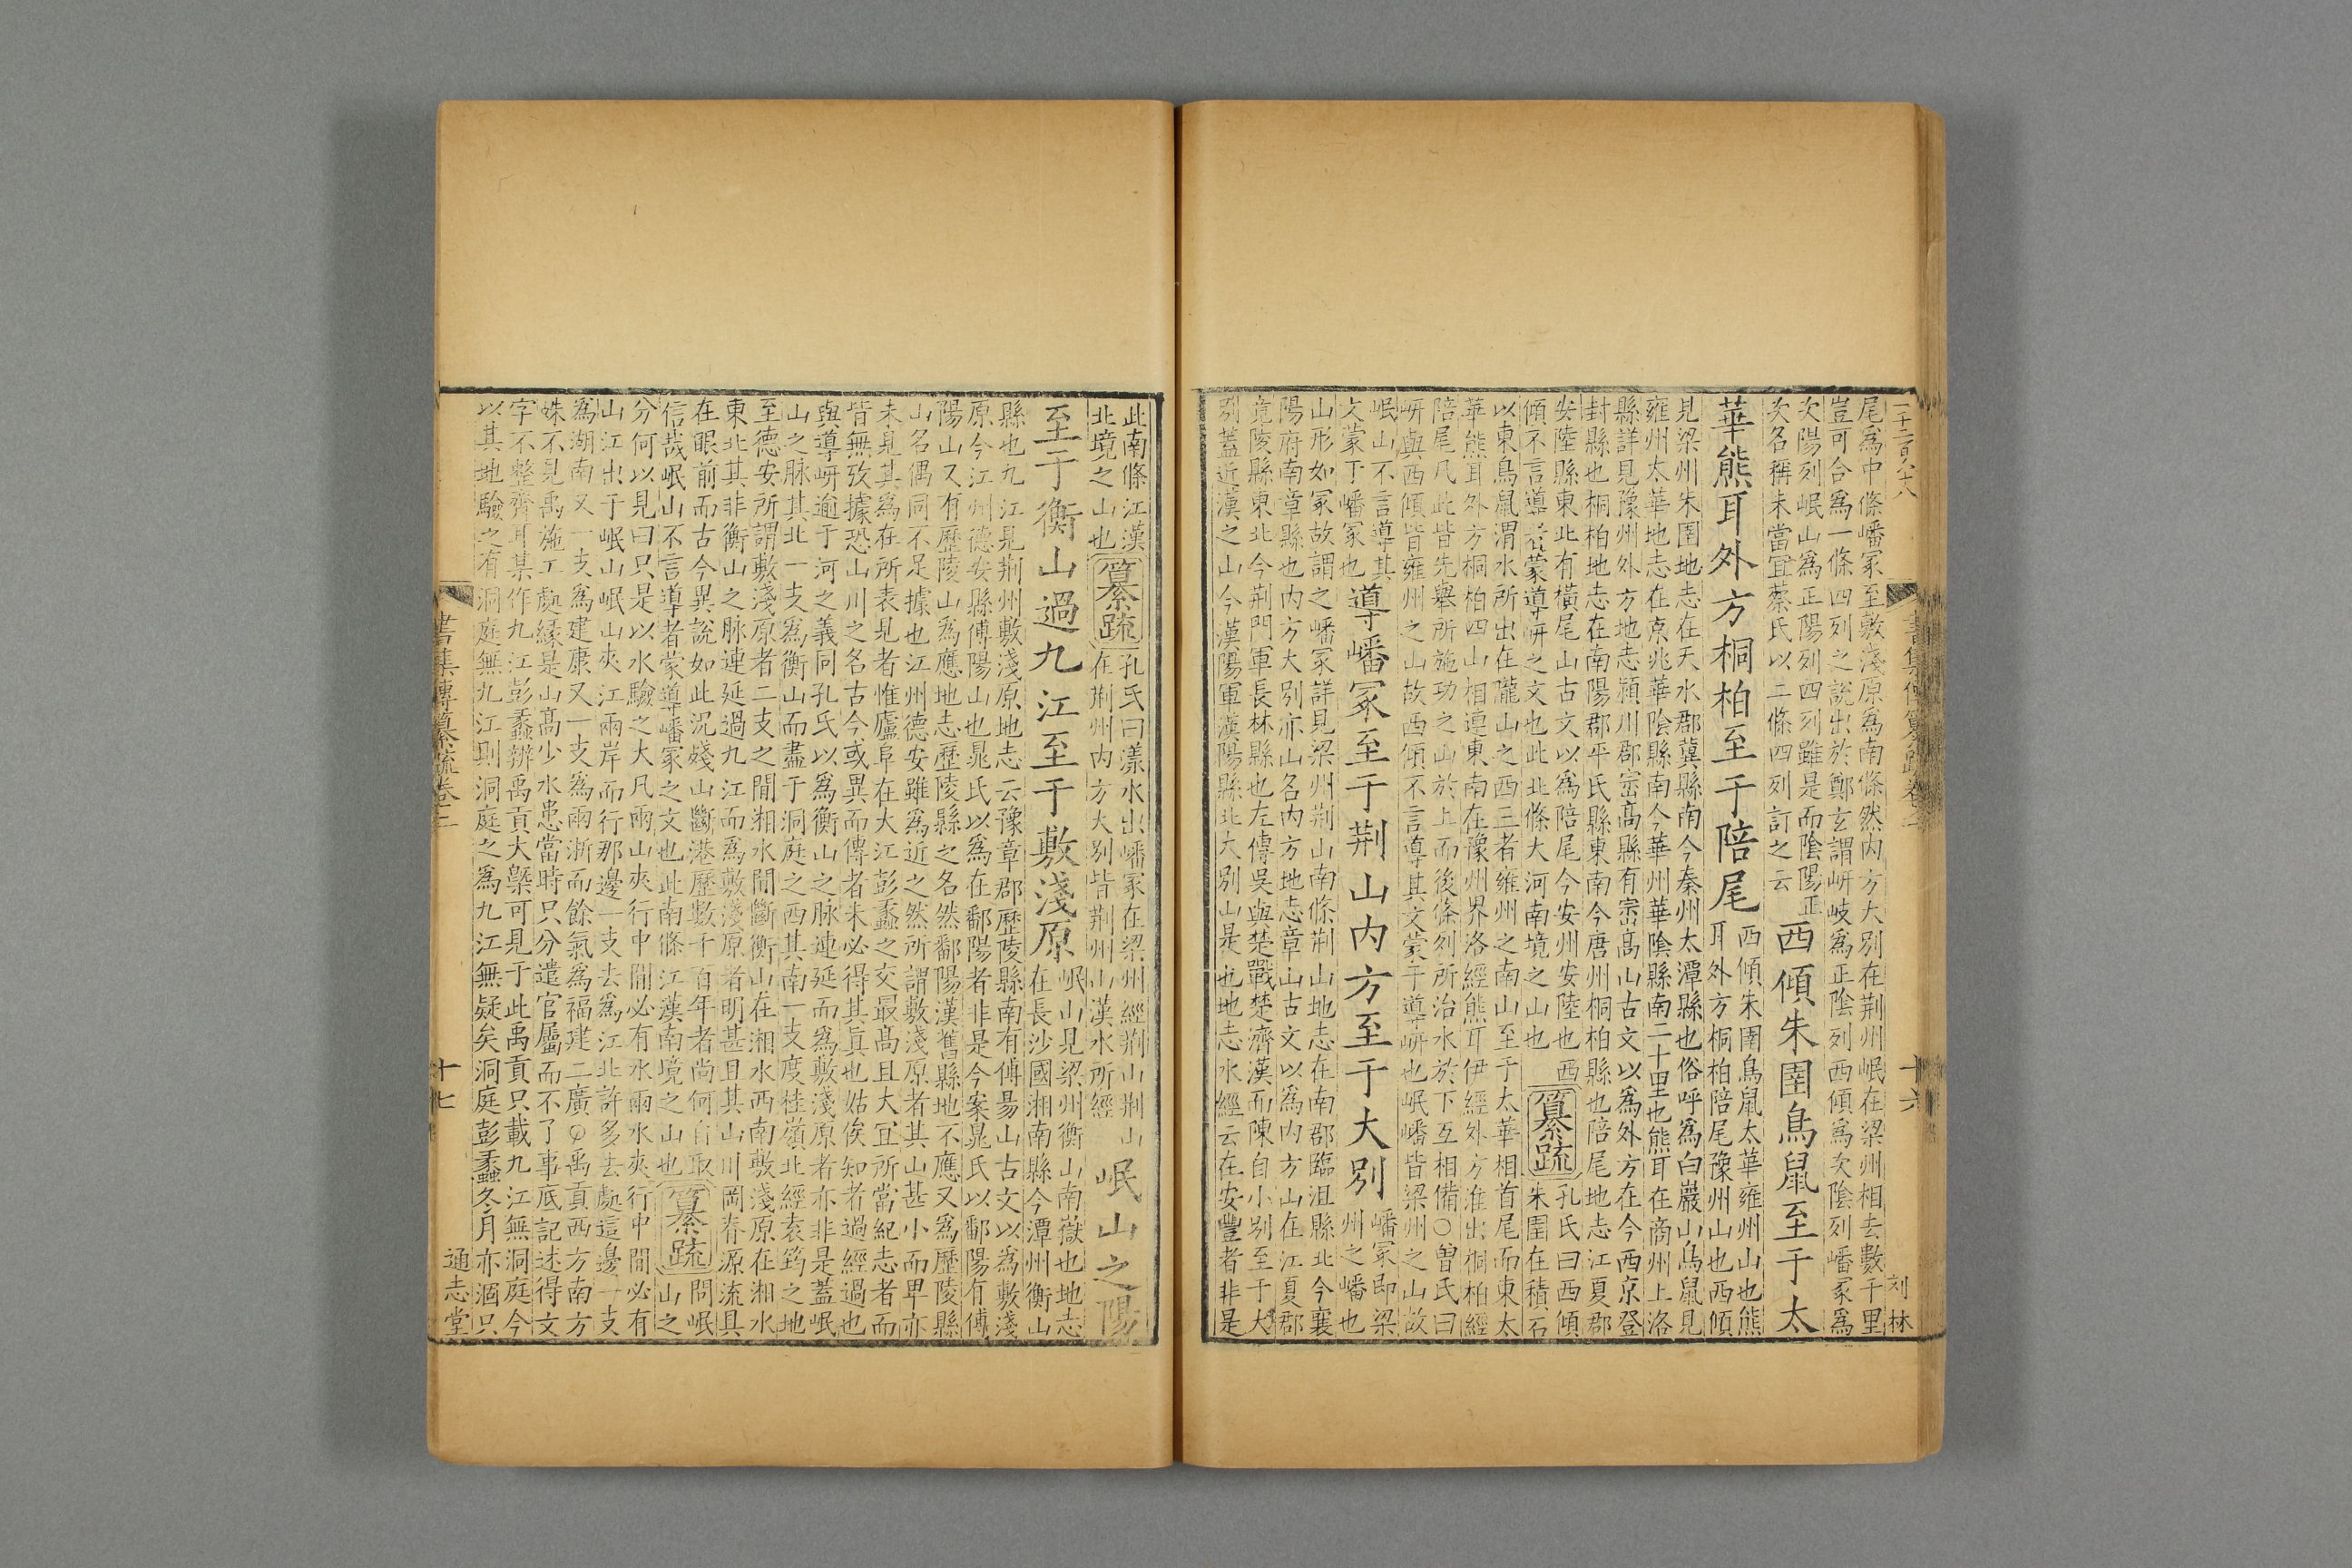 尾爲中條嶓冢至敷淺原爲南條然内方大别在荆州岷在梁州相去數千里
豈可合爲一條四列之說出於鄭玄謂岍岐爲正陰列西傾爲次陰列嶓冢爲
次陽列岷山爲正陽列四列雖是而陰陽正
次名稱未當宜蔡氏以二條四列訂之云
西傾朱圉鳥鼠至于太
華熊耳外方桐柏至于陪尾
西傾朱圉鳥鼠太華雍州山也熊
耳外方桐柏陪尾豫州山也西傾
見梁州朱圉地志在天水郡冀縣南今秦州太潭縣也俗呼爲白巖山鳥鼠見
雍州太華地志在京兆華陰縣南今華州華陰縣南二十里也熊耳在商州上洛
縣詳見豫州外方地志潁川郡崈高縣有崈高山古文以爲外方在今西京登
封縣也桐柏地志在南陽郡平氏縣東南今唐州桐柏縣也陪尾地志江夏郡
安陸縣東北有橫尾山古文以爲陪尾今安州安陸也西
傾不言導者蒙導岍之文也此北條大河南境之山也
纂疏
孔氏曰西傾
朱圉在積石
以東鳥鼠渭水所出在隴山之西三者雍州之南山至于太華相首尾而東太
華熊耳外方桐柏四山相連東南在豫州界洛經熊耳伊經外方淮出桐柏經
陪尾凡此皆先舉所施功之山於上而後條列所治水於下互相備○曾氏曰
岍與西傾皆雍州之山故西傾不言導其文蒙于導岍也岷嶓皆梁州之山故
岷山不言導其
文蒙于嶓冢也
導嶓冢至于荆山内方至于大别
嶓冢即梁
州之嶓也
山形如冢故謂之嶓冢詳見梁州荆山南條荆山地志在南郡臨沮縣北今襄
陽府南章縣也内方大别亦山名内方地志章山古文以爲内方山在江夏郡
竟陵縣東北今荆門軍長林縣也左傳吳與楚戰楚濟漢而陳自小别至于大
别蓋近漢之山今漢陽軍漢陽縣北大别山是也地志水經云在安豐者非是
刘林
十六
此南條江漢
北境之山也
纂疏
孔氏曰漾水出嶓冢在梁州經荆山荆山
在荆州内方大别皆荆州山漢水所經
岷山之陽
至于衡山過九江至于敷淺原
岷山見梁州衡山南嶽也地志
在長沙國湘南縣今潭州衡山
縣也九江見荆州敷淺原地志云豫章郡歷陵縣南有傅昜山古文以爲敷淺
原今江州德安縣傅陽山也晁氏以爲在鄱陽者非是今案晁氏以鄱陽有傅
陽山又有歷陵山爲應地志歷陵縣之名然鄱陽漢舊縣地不應又爲歷陵縣
山名偶同不足據也江州德安雖爲近之然所謂敷淺原者其山甚小而卑亦
未見其爲在所表見者惟廬阜在大江彭蠡之交最高且大宜所當紀志者而
皆無攷據恐山川之名古今或異而傳者未必得其真也姑俟知者過經過也
與導岍逾于河之義同孔氏以爲衡山之脉連延而爲敷淺原者亦非是蓋岷
山之脉其北一支爲衡山而盡于洞庭之西其南一支度桂嶺北經袁筠之地
至德安所謂敷淺原者二支之間湘水間斷衡山在湘水西南敷淺原在湘水
東北其非衡山之脉連延過九江而爲敷淺原者明甚且其山川岡脊源流具
在眼前而古今異說如此況殘山斷港歷數千百年者尚何自取
信哉岷山不言導者蒙導嶓冢之文也此南條江漢南境之山也
纂疏
問岷
山之
分何以見曰只是以水驗之大凡兩山夾行中間必有水兩水夾行中間必有
山江出于岷山岷山夾江兩岸而行那邊一支去爲江北許多去處這邊一支
爲湖南又一支爲建康又一支爲兩浙而餘氣爲福建二廣○禹貢西方南方
殊不見禹施工處緣是山高少水患當時只分遣官屬而不了事底記述得文
字不整齊耳某作九江彭蠡辨禹貢大槩可見于此禹貢只載九江無洞庭今
以其地驗之有洞庭無九江則洞庭之爲九江無疑矣洞庭彭蠡冬月亦涸只
書集傳纂疏卷二
十七
通志堂